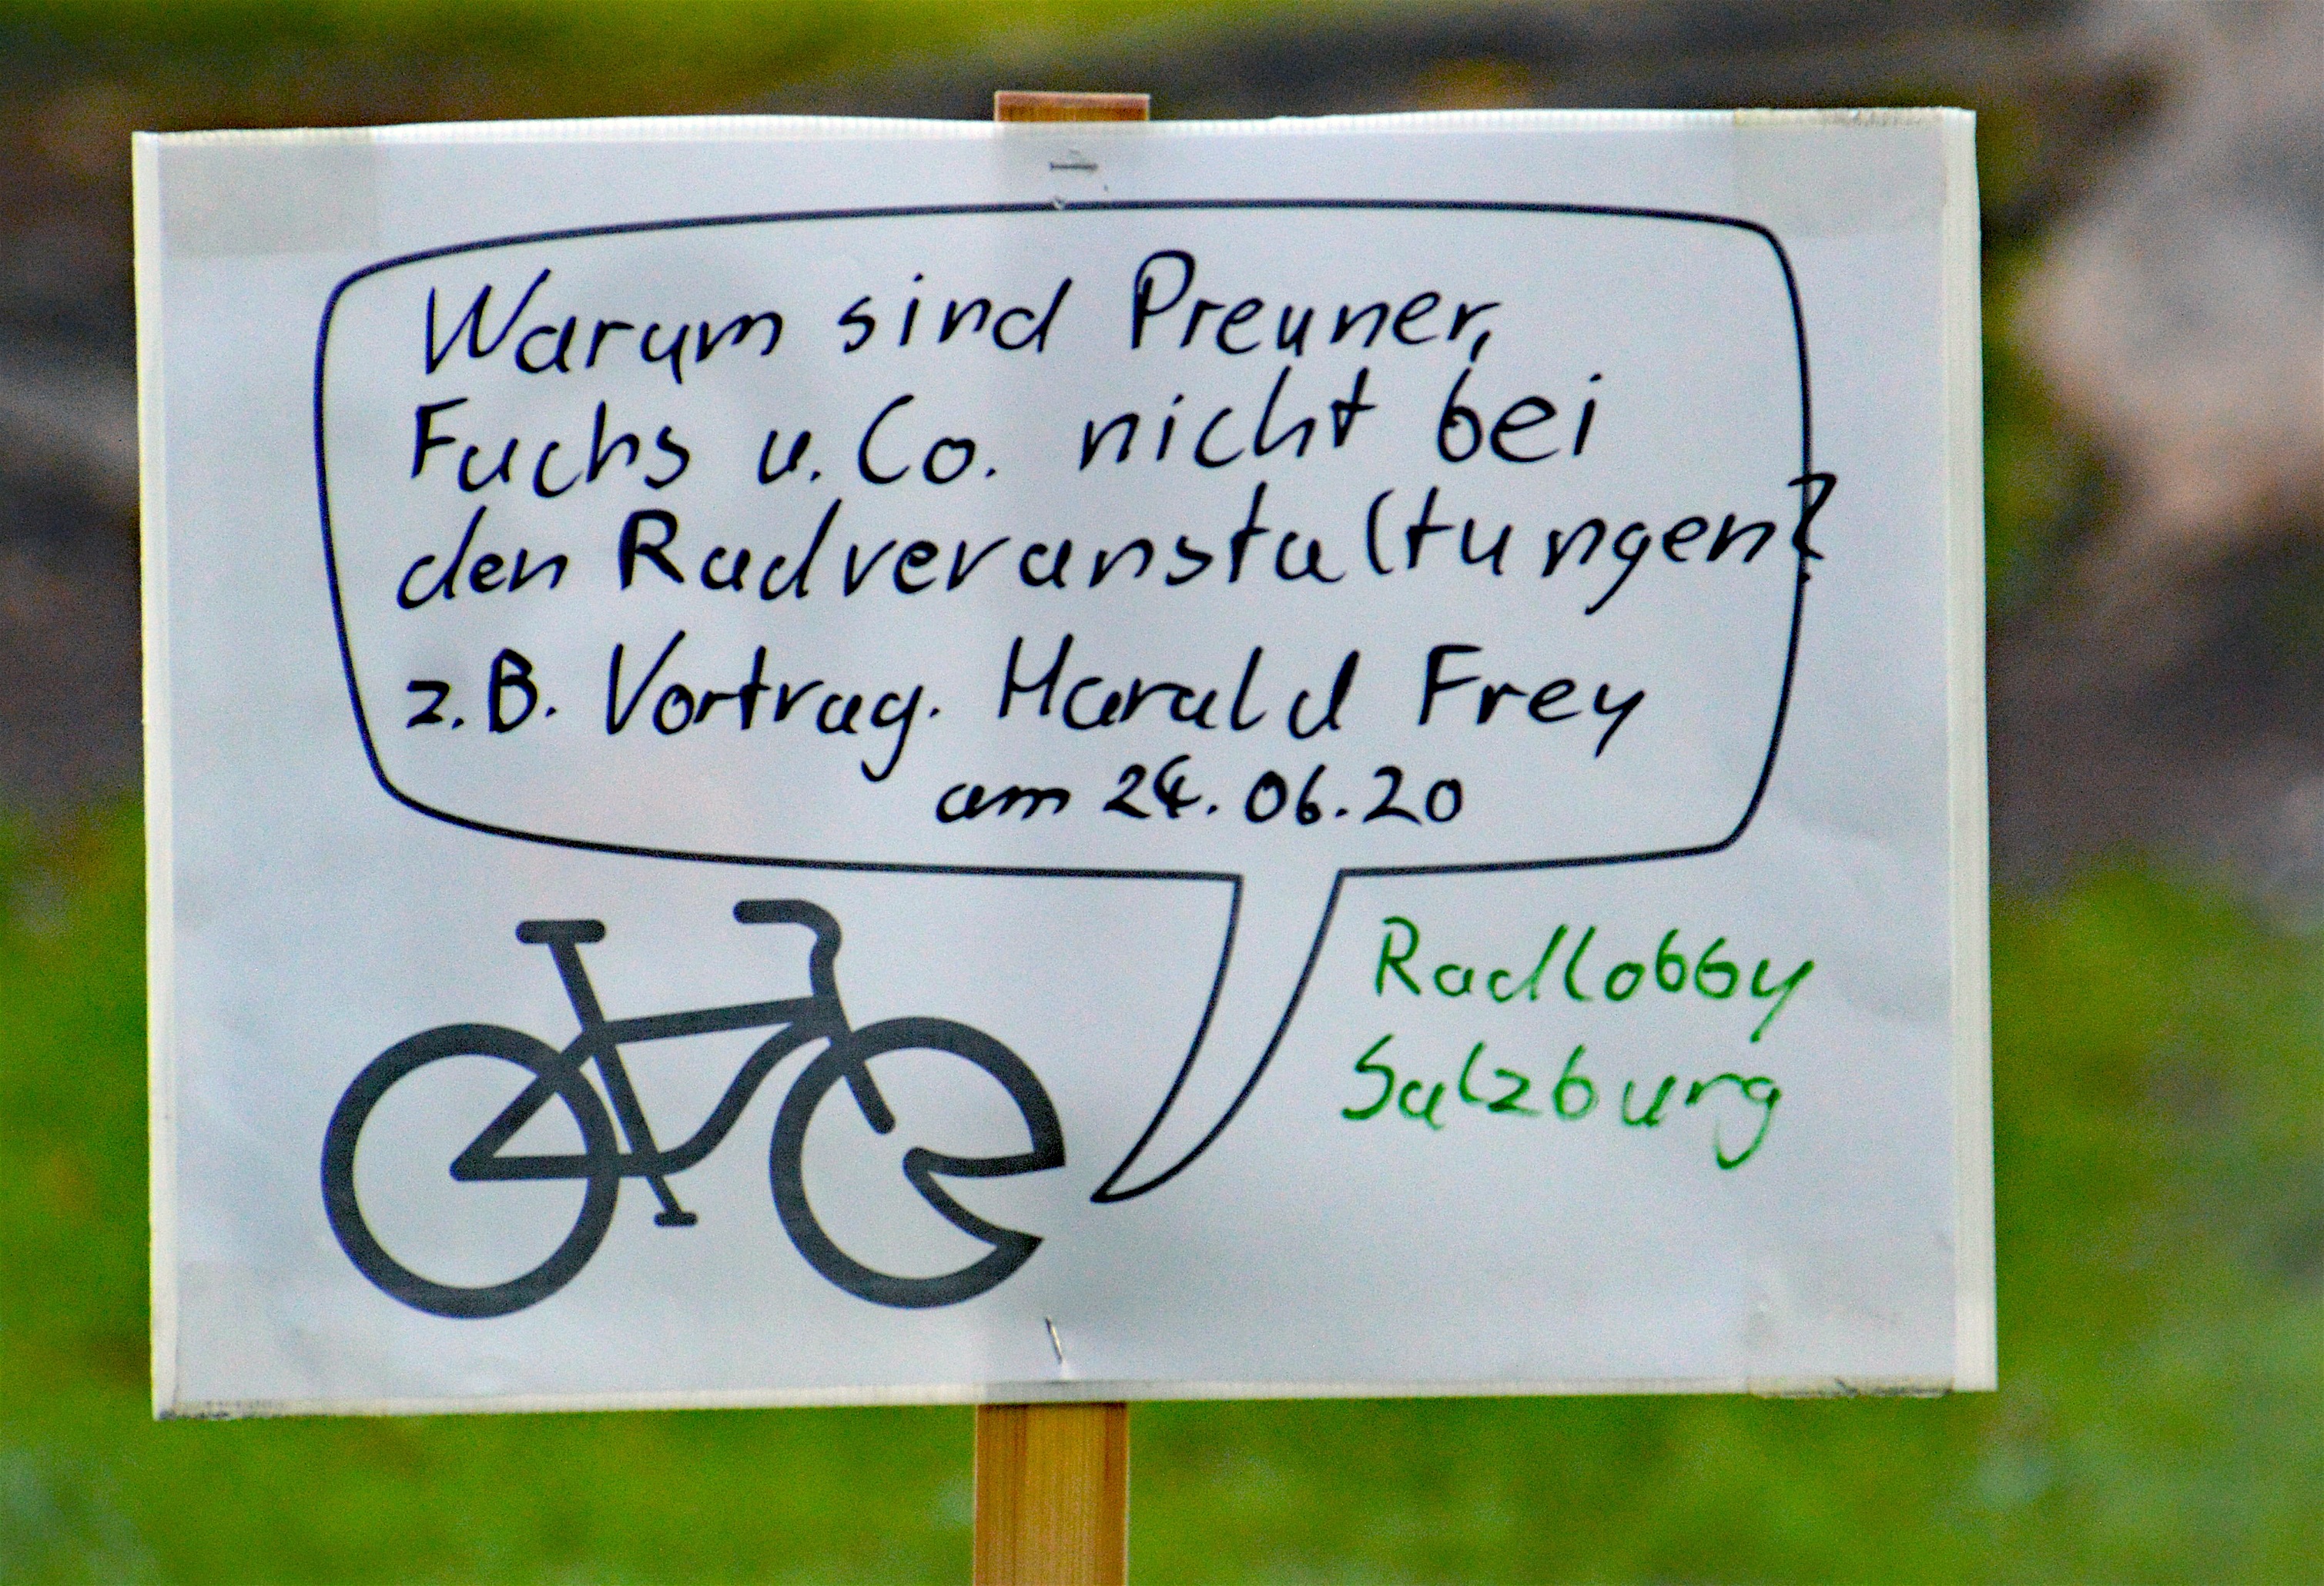 Warum sind Preuner,
Fuchs u. Co. nicht bei
den Radveranstaltungen?
z.B. Vortrag. Harald Frey
am 24.06.20
Radlobby
Salzburg